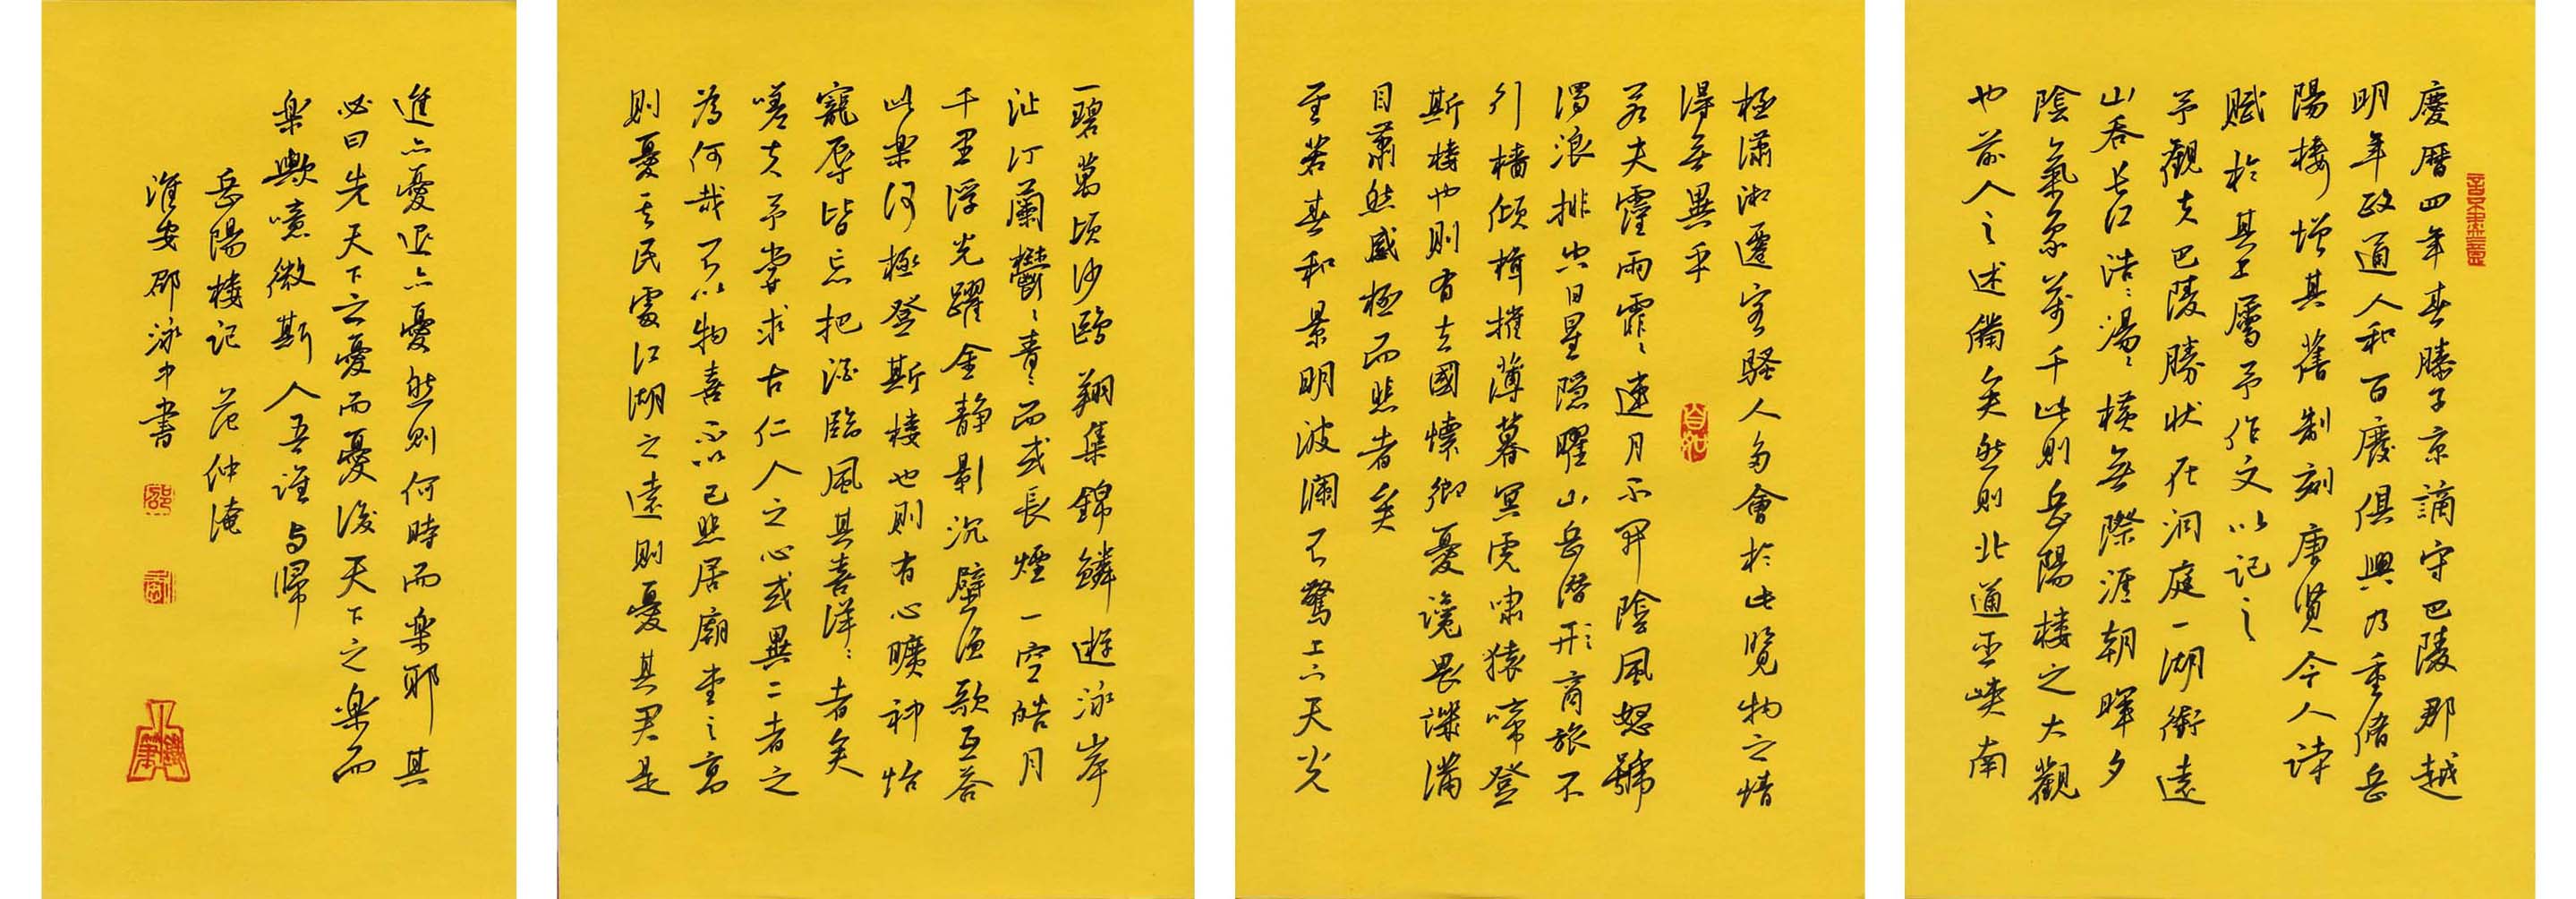 慶曆四年春滕子京謫守巴陵郡越
明年政通人和百廢俱興乃重脩岳
陽樓增其舊制刻唐賢今人詩
賦於其上屬予作文以記之
予觀夫巴陵勝狀在洞庭一湖銜遠
山吞長江浩浩湯湯橫無際涯朝暉夕
陰氣象萬千此則岳陽樓之大觀
也前人之述備矣然則北通巫峽南
極瀟湘遷客騷人多會於此覽物之情
得無異乎
若夫霪雨霏霏連月不開陰風怒號
濁浪排空日星隱曜山岳潛形商旅不
行檣傾楫摧薄暮冥冥虎嘯猿啼登
斯樓也則有去國懷鄉憂讒畏譏滿
目蕭然感極而悲者矣
至若春和景明波瀾不驚上下天光
一碧萬頃沙鷗翔集錦鱗遊泳岸
沚汀蘭鬱鬱青青而或長煙一空皓月
千里浮光躍金靜影沉璧漁歌互答
此樂何極登斯樓也則有心曠神怡
寵辱皆忘把酒臨風其喜洋洋者矣
嗟夫予嘗求古仁人之心或異二者之
為何哉不以物喜不以己悲居廟堂之高
則憂其民處江湖之遠則憂其君是
進亦憂退亦憂然則何時而樂耶其
必曰先天下之憂而憂後天下之樂而
樂歟噫微斯人吾誰与歸
岳陽樓記 范仲淹
淮安邵泳中書